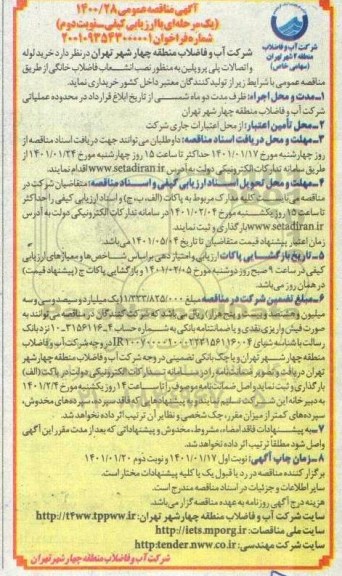 آگهی مناقصه عمومی ۱۴۰۰/۲۸
(یک مرحله‌ای با ارزیابی کیفی-نوبت دوم)
شماره فراخوان ۲۰۰۱۰۹۳۵۴۳۰۰۰۰۰۱
شرکت آب و فاضلاب
منطقه ۴ شهر تهران
(سهامی خاص)
شرکت آب و فاضلاب منطقه چهار شهر تهران در نظر دارد خرید لوله
و اتصالات پلی پروپلین به منظور نصب انشعاب فاضلاب خانگی از طریق
مناقصه عمومی با شرایط زیر از تولید کنندگان معتبر داخل کشور خریداری نماید.
۱-مدت و محل اجرا: ظرف مدت دو ماه شمسی از تاریخ ابلاغ قرارداد در محدوده عملیاتی
شرکت آب و فاضلاب منطقه چهار شهر تهران
۲-محل تأمین اعتبار: از محل اعتبارات جاری شرکت
۳-مهلت و محل دریافت اسناد مناقصه: داوطلبان می‌توانند جهت دریافت اسناد مناقصه از
روز چهارشنبه مورخ ۱۴۰۱/۰۱/۱۷ حداکثر تا ساعت ۱۵ روز چهارشنبه مورخ ۱۴۰۱/۰۱/۲۴ از
طریق سامانه تدارکات الکترونیکی دولت به آدرس www.setadiran.ir اقدام نمایند.
۴-مهلت و محل تحویل اسناد ارزیابی کیفی و اسناد مناقصه: متقاضیان شرکت در
مناقصه می‌بایست کلیه مدارک مربوط به پاکات (الف، ب، ج) و اسناد ارزیابی کیفی را حداکثر
تا ساعت ۱۵ روز یکشنبه مورخ ۱۴۰۱/۰۲/۰۴ در سامانه تدارکات الکترونیکی دولت به آدرس
www.setadiran.ir بارگذاری و ثبت نمایند.
زمان اعتبار پیشنهاد قیمت متقاضیان تا تاریخ ۱۴۰۱/۰۵/۰۴ می‌باشد.
۵-تاریخ بازگشایی پاکات: ارزیابی و امتیازدهی بر اساس شاخص‌ها و معیارهای ارزیابی
کیفی در ساعت ۹ صبح روز دوشنبه مورخ ۱۴۰۱/۰۲/۰۵ و بازگشایی پاکات ج (پیشنهاد قیمت)
در همان روز می‌باشد.
۶-مبلغ تضمین شرکت در مناقصه مبلغ ۱/۳۳۳/۸۲۵/۰۰۰ یک میلیارد و سیصد و سی و سه
میلیون و هشتصد و بیست و پنج هزار ریال می‌باشد که شرکت کنندگان در مناقصه می‌توانند به
صورت فیش واریزی نقدی و یا ضمانتنامه بانکی به شماره حساب نزد بانک
رسالت با شناسه شبای در وجه شرکت آب و فاضلاب
منطقه چهار شهر تهران و یا چک بانکی تضمینی در وجه شرکت آب و فاضلاب منطقه چهار شهر
تهران دریافت و تصویر ضمانتنامه را در سامانه تدارکات الکترونیکی دولت در پاکت (الف)
بارگذاری و ثبت نماید و اصل ضمانتنامه موصوف را تا ساعت ۱۴ روز یکشنبه مورخ ۱۴۰۱/۲/۴
به دبیرخانه این شرکت تسلیم نمایند و به پیشنهادهایی که فاقد سپرده، سپرده‌های مخدوش،
سپرده‌های کمتر از میزان مقرر، چک شخصی و نظایر آن ترتیب اثر داده نخواهد شد.
۷-به پیشنهادات فاقد امضاء، مشروط، مخدوش و پیشنهاداتی که بعد از مدت مقرر این آگهی
واصل شود مطلقاً ترتیب اثر داده نخواهد شد.
۸-زمان چاپ آگهی: نوبت اول ۱۴۰۱/۰۱/۱۷ و نوبت دوم ۱۴۰۱/۰۱/۲۰
برگزار کننده مناقصه در رد یا قبول یک یا کلیه پیشنهادات مختار است.
سایر اطلاعات و جزئیات در اسناد مناقصه مندرج است.
هزینه درج آگهی روزنامه به عهده مناقصه گزار می‌باشد.
سایت شرکت آب و فاضلاب منطقه چهار شهر تهران: http://t4ww.tppww.ir
سایت ملی مناقصات: http://iets.mporg.ir
سایت شرکت مهندسی: http:tender.nww.co.ir
شرکت آب و فاضلاب منطقه چهار شهر تهران